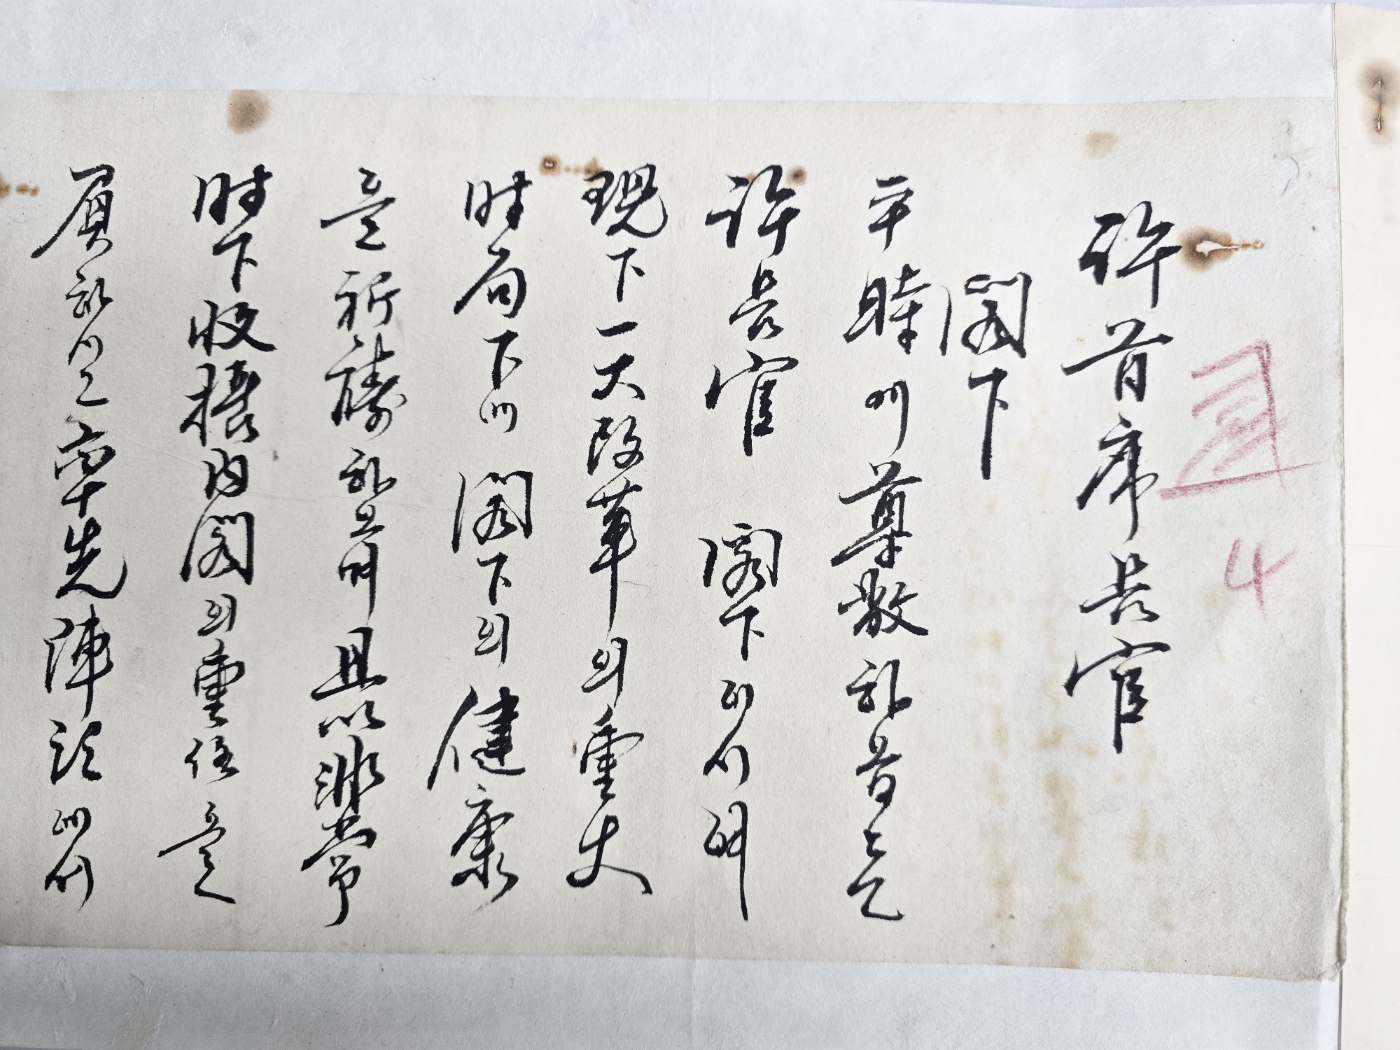 許首席長官
閣下
平時에 尊敬하옵는
許長官 閣下이시여
現下 一大改革의 重大
時局下에 閣下의 健康
을 祈禱하오며 且以非常
時下 收攬內閣의 重任을
負하시고 率先陣頭에서
4